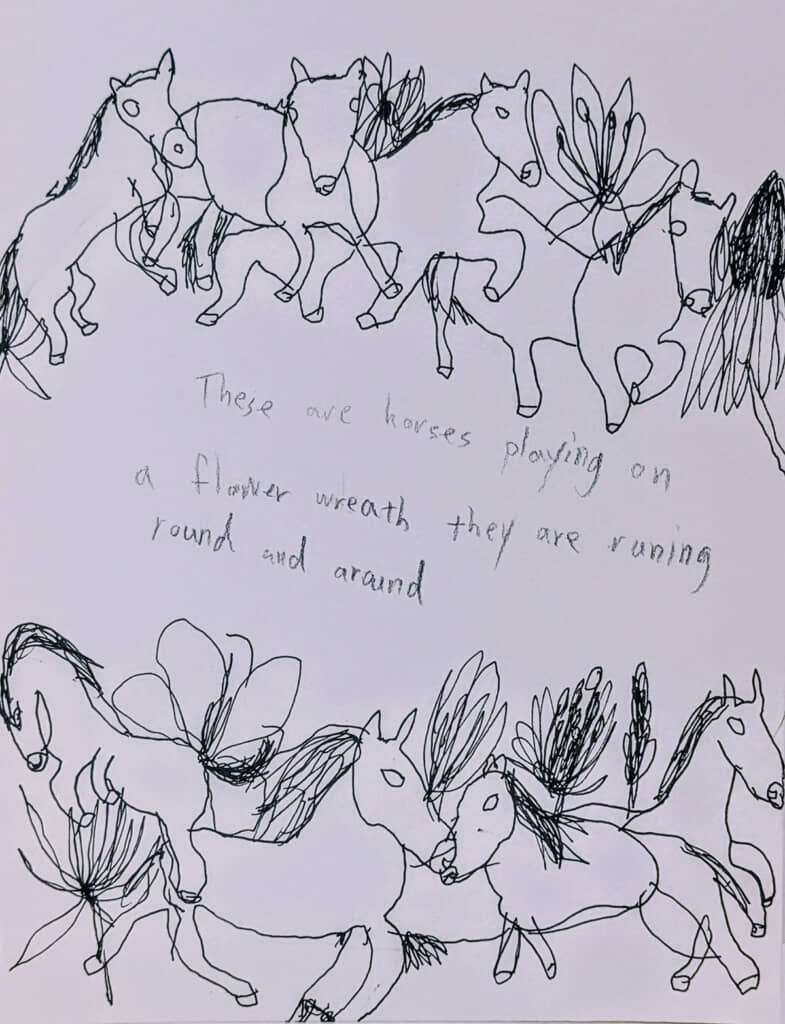 These are horses playing on
a flower wreath they are runing
round and around